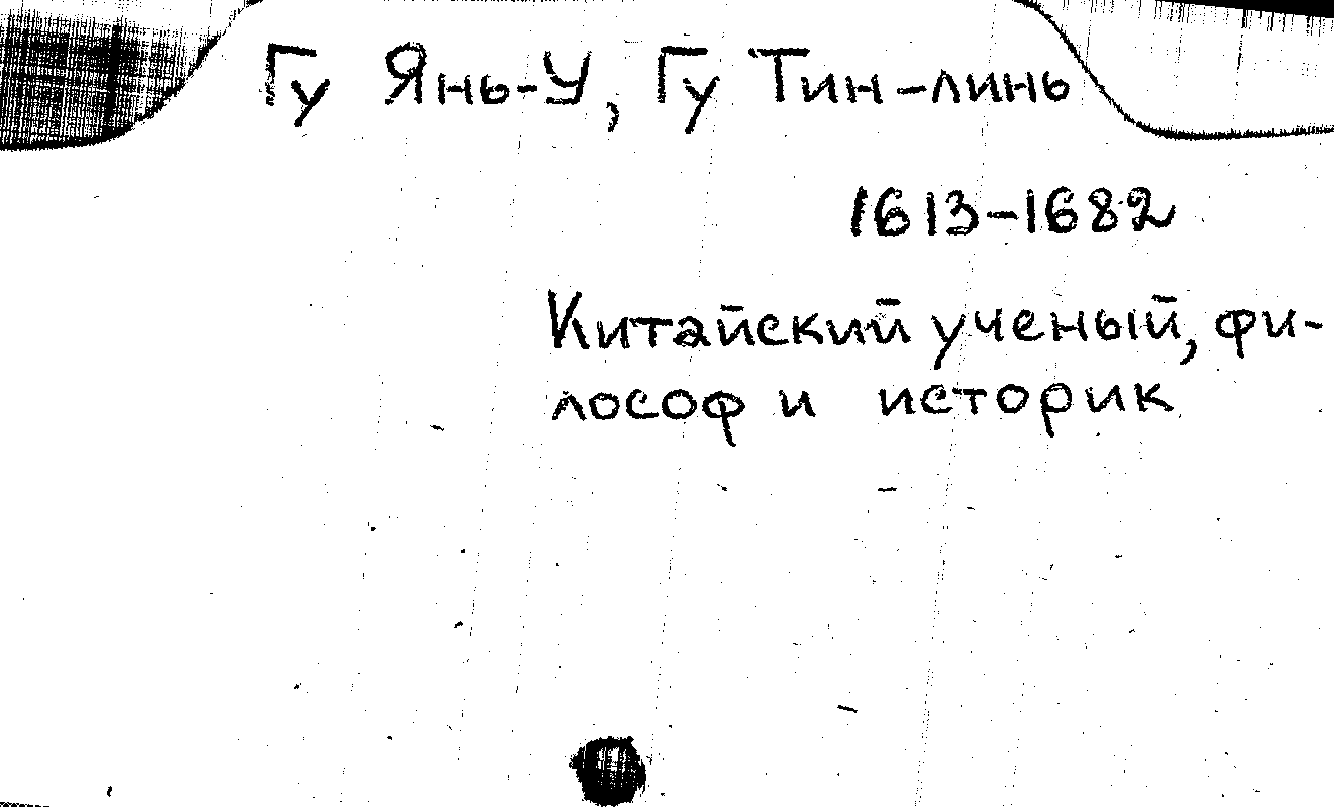 Гу Янь-У, Гу Тин-линь
1613-1682
Китайский ученый, фи-
лософ и историк